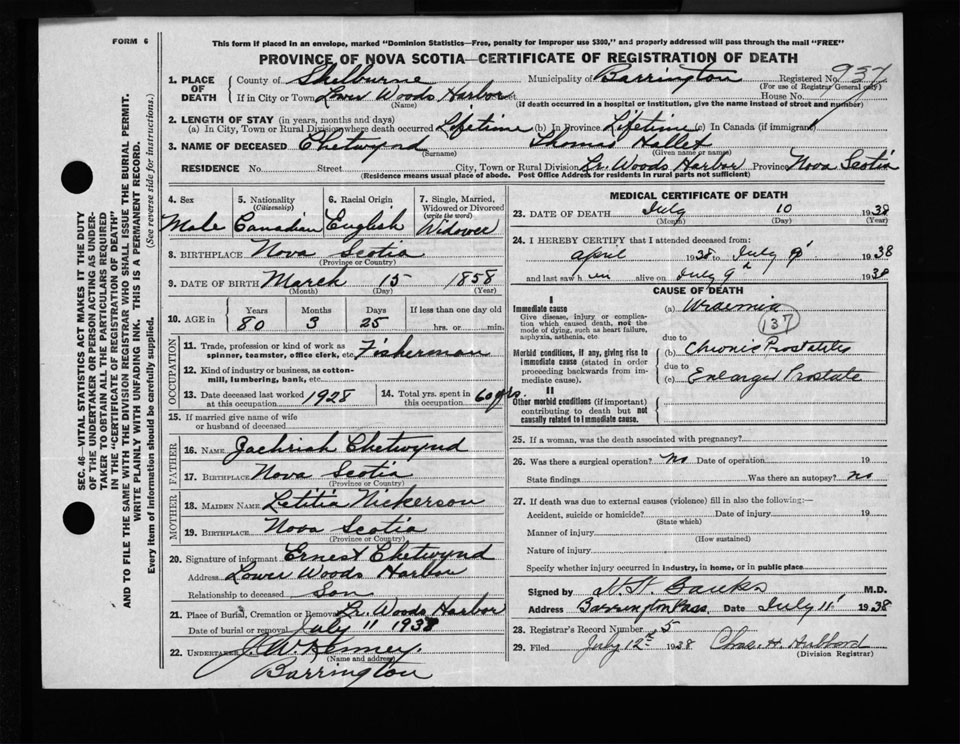 FORM 6
This form if placed in an envelope, marked "Dominion Statistics—Free, penalty for improper use $300," and properly addressed will pass through the mail "FREE"
PROVINCE OF NOVA SCOTIA—CERTIFICATE OF REGISTRATION OF DEATH
1. PLACE OF DEATH County of Shelburne Municipality of Barrington Registered No. 937
(For use of Registrar General only)
If in City or Town Lower Woods Harbor House No.
(Name) (If death occurred in a hospital or institution, give the name instead of street and number)
2. LENGTH OF STAY (in years, months and days)
(a) In City, Town or Rural Division where death occurred Lifetime (b) In Province Lifetime (c) In Canada (if immigrant)
3. NAME OF DECEASED Chetwynd Thomas Hallet
(Surname) (Given name or names)
RESIDENCE No. Street City, Town or Rural Division Lr. Woods Harbor Province Nova Scotia
(Residence means usual place of abode. Post Office Address for residents in rural parts not sufficient)
4. Sex 5. Nationality (Citizenship) 6. Racial Origin 7. Single, Married, Widowed or Divorced (write the word)
Male Canadian English Widower
8. BIRTHPLACE Nova Scotia
(Province or Country)
9. DATE OF BIRTH March 15 1858
(Month) (Day) (Year)
10. AGE in Years Months Days If less than one day old
80 3 25 hrs. or min.
OCCUPATION
11. Trade, profession or kind of work as spinner, teamster, office clerk, etc. Fisherman
12. Kind of industry or business, as cotton-mill, lumbering, bank, etc.
13. Date deceased last worked at this occupation 1928 14. Total yrs. spent in this occupation 60 yrs.
15. If married give name of wife or husband of deceased
FATHER
16. NAME Zachriah Chetwynd
17. BIRTHPLACE Nova Scotia
(Province or Country)
MOTHER
18. MAIDEN NAME Letitia Nickerson
19. BIRTHPLACE Nova Scotia
(Province or Country)
20. Signature of informant Ernest Chetwynd
Address Lower Woods Harbor
Relationship to deceased Son
21. Place of Burial, Cremation or Removal Lr. Woods Harbor
Date of burial or removal July 11 1938
22. UNDERTAKER J. W. Kenney
(Name and address)
Barrington
MEDICAL CERTIFICATE OF DEATH
23. DATE OF DEATH July 10 1938
(Month) (Day)
24. I HEREBY CERTIFY that I attended deceased from:
April 1938 to July 9 1938
and last saw him alive on July 9th 1938
CAUSE OF DEATH
I
Immediate cause (a) Uraemia
Give disease, injury or complication which caused death, not the mode of dying, such as heart failure, asphyxia, asthenia, etc.
137
due to
Morbid conditions, if any, giving rise to immediate cause (stated in order proceeding backwards from immediate cause). (b) Chronic Prostatitis
due to
(c) Enlarged Prostate
II
Other morbid conditions (if important) contributing to death but not causally related to immediate cause.
25. If a woman, was the death associated with pregnancy?
26. Was there a surgical operation? no Date of operation 19
State findings Was there an autopsy? no
27. If death was due to external causes (violence) fill in also the following:—
Accident, suicide or homicide? Date of injury 19
(State which)
Manner of injury
(How sustained)
Nature of injury
Specify whether injury occurred in industry, in home, or in public place
Signed by H. H. Banks M.D.
Address Barrington Pass. Date July 11 1938
28. Registrar's Record Number 5
29. Filed July 12th 1938 Chas. H. Hubbard
(Division Registrar)
SEC. 46—VITAL STATISTICS ACT MAKES IT THE DUTY
OF THE UNDERTAKER OR PERSON ACTING AS UNDER-
TAKER TO OBTAIN ALL THE PARTICULARS REQUIRED
IN THE "CERTIFICATE OF REGISTRATION OF DEATH"
AND TO FILE THE SAME WITH THE DIVISION REGISTRAR WHO SHALL ISSUE THE BURIAL PERMIT.
WRITE PLAINLY WITH UNFADING INK. THIS IS A PERMANENT RECORD.
Every item of information should be carefully supplied. (See reverse side for instructions.)